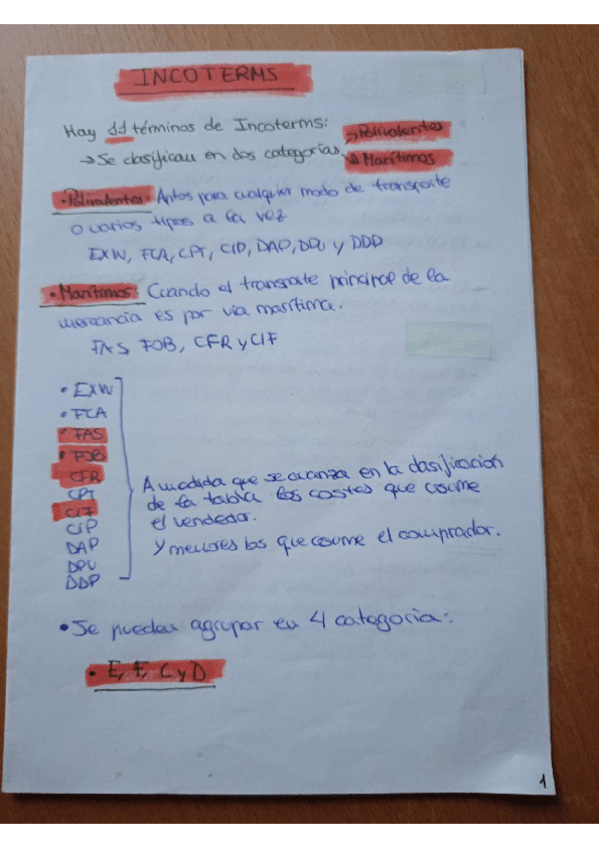 INCOTERMS
Hay 11 términos de Incoterms:
→ Se clasifican en dos categorías
→ Polivalentes
↘ Marítimos
• Polivalentes: Aptos para cualquier modo de transporte
o varios tipos a la vez
EXW, FCA, CPT, CIP, DAP, DPU y DDP
• Marítimos: Cuando el transporte principal de la
mercancia es por via marítima.
FAS, FOB, CFR y CIF
• EXW
• FCA
• FAS
• FOB
CFR
CPT
CIF
CIP
DAP
DPU
DDP
A medida que se avanza en la clasificación
de la tabla los costes que asume
el vendedor.
Y menores los que asume el comprador.
• Se pueden agrupar en 4 categoria:
• E, F, C y D
1